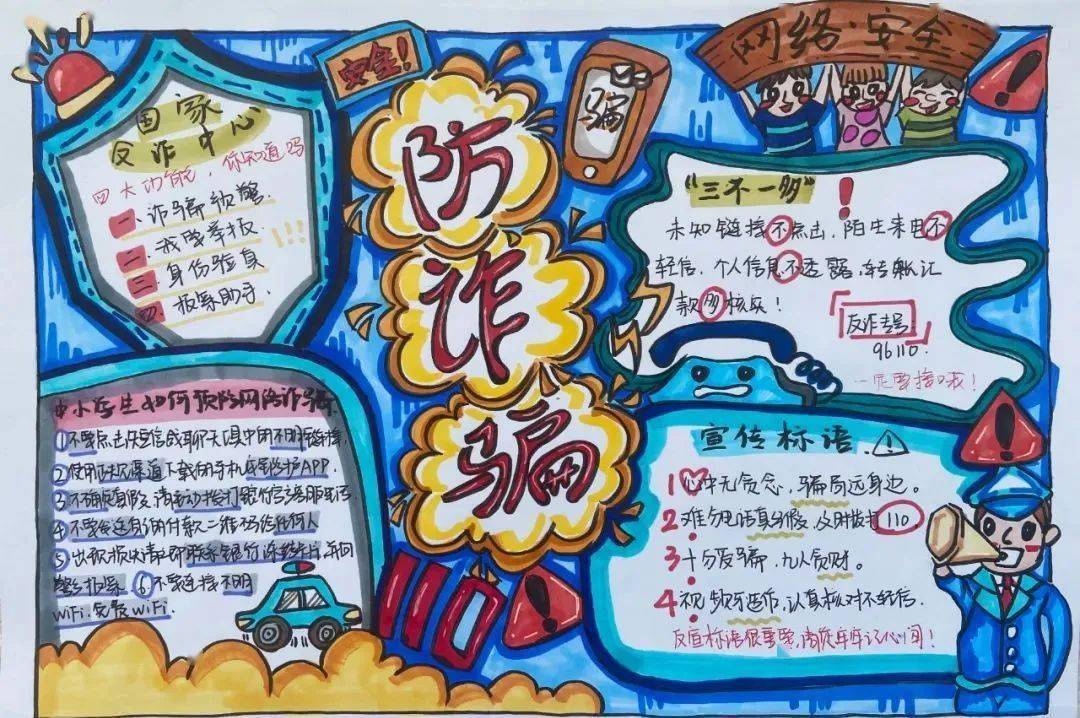 安全!
防诈骗
骗
网络·安全
国家
反诈中心
四大功能,你知道吗
一、诈骗预警
二、我要举报.
三、身份验真
四、报案助手.
!!!
"三不一多"!
未知链接不点击,陌生来电不
轻信,个人信息不透露,转账汇
款多核实!
反诈专号:
96110.
一定要接哦!
中小学生如何预防网络诈骗
①不要点击短信或聊天工具中的不明链接,
②使用正规渠道下载的手机APP.
③不确定真假,请主动拨打银行官方客服电话
④不要发送自己的付款二维码给任何人
⑤出现损失请立即联系银行冻结卡片并向
警方报案.⑥不要连接不明
WiFi.免费WiFi.
110!
宣传标语.
1心中无贪念,骗局远身边。
2难分电话真与假,及时拨打110.
3十分爱骗,九人贪财。
4视频可造作,认真核对不轻信.
反宣标语很重要,请大家牢记心间!